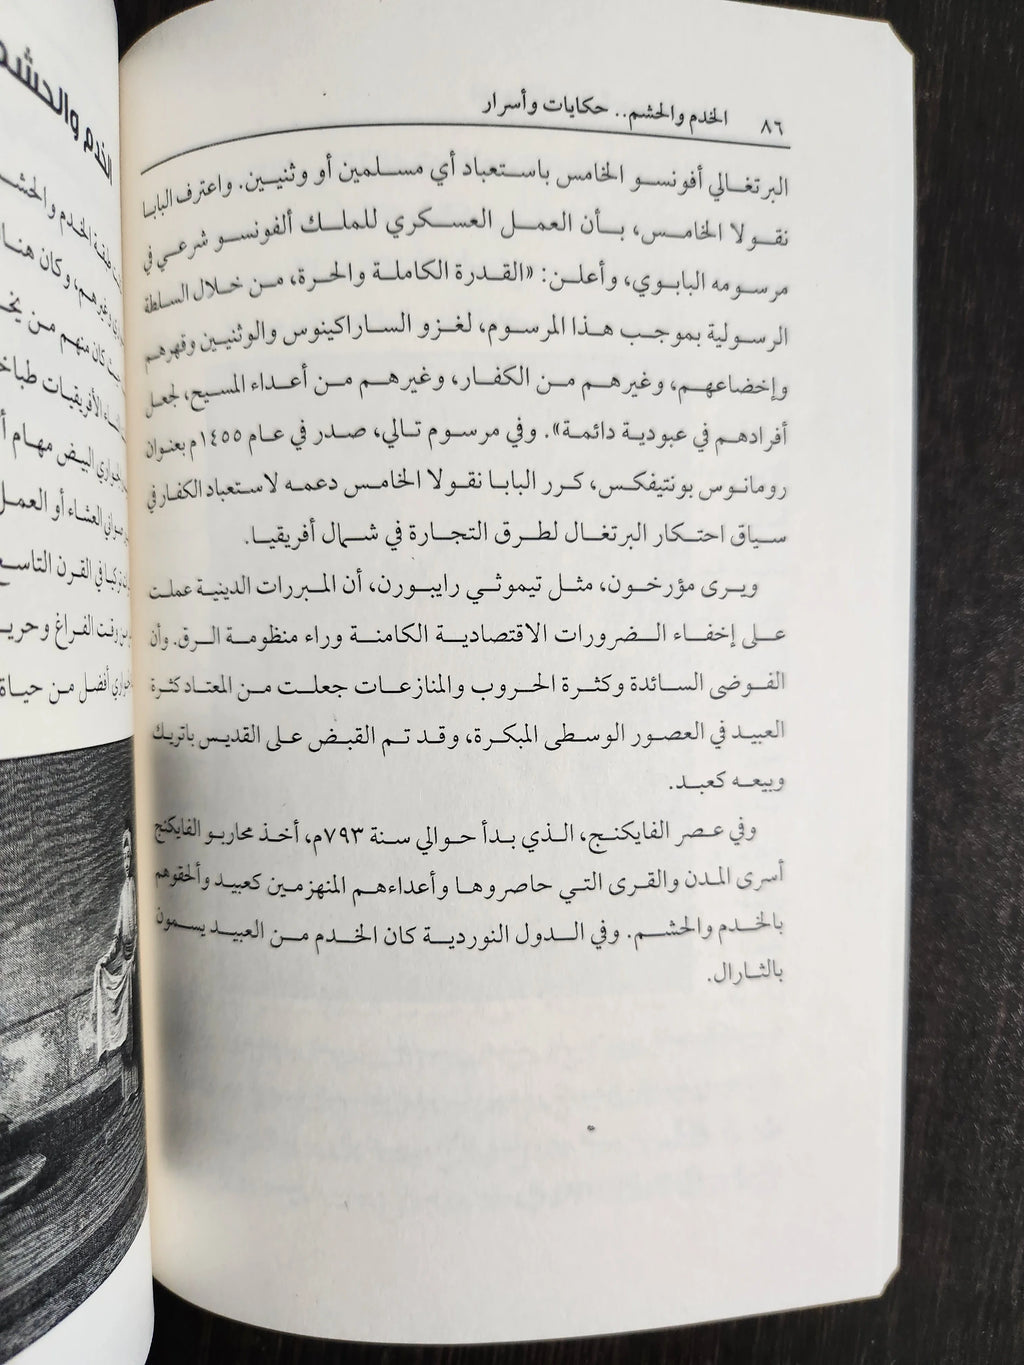 ٨٦ الخدم والحشم.. حكايات وأسرار
البرتغالي أفونسو الخامس باستعباد أي مسلمين أو وثنيين. واعترف البابا
نقولا الخامس، بأن العمل العسكري للملك ألفونسو شرعي في
مرسومه البابوي، وأعلن: «القدرة الكاملة والحرة، من خلال السلطة
الرسولية بموجب هذا المرسوم، لغزو الساراكينوس والوثنيين وقهرهم
وإخضاعهم، وغيرهم من الكفار، وغيرهم من أعداء المسيح، لجعل
أفرادهم في عبودية دائمة». وفي مرسوم تالي، صدر في عام ١٤٥٥م بعنوان
رومانوس بونتيفكس، كرر البابا نقولا الخامس دعمه لاستعباد الكفار في
سياق احتكار البرتغال لطرق التجارة في شمال أفريقيا.
ويرى مؤرخون، مثل تيموثي رايبورن، أن المبررات الدينية عملت
على إخفاء الضرورات الاقتصادية الكامنة وراء منظومة الرق. وأن
الفوضى السائدة وكثرة الحروب والمنازعات جعلت من المعتاد كثرة
العبيد في العصور الوسطى المبكرة، وقد تم القبض على القديس باتريك
وبيعه كعبد.
وفي عصر الفايكنج، الذي بدأ حوالي سنة ٧٩٣م، أخذ محاربو الفايكنج
أسرى المدن والقرى التي حاصروها وأعداءهم المنهزمين كعبيد وألحقوهم
بالخدم والحشم. وفي الدول النوردية كان الخدم من العبيد يسمون
بالثارال.
الخدم والحشم
طبقة الخدم والحشم
وغيرهم، وكان هنا
كان منهم من يخ
الأفريقيات طباخ
البيض مهام أ
العشاء أو العمل
في القرن التاسع
وقت الفراغ وحرية
أفضل من حياة